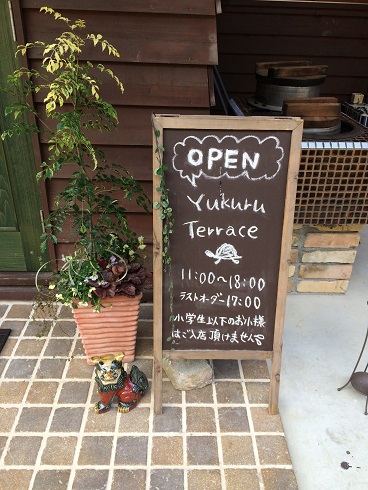 OPEN
Yukuru
Terrace
11:00~18:00
ラストオーダー17:00
小学生以下のお小様
はご入店頂けません